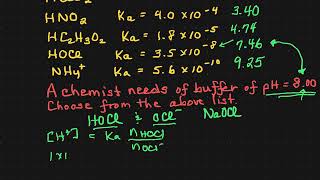 HNO₂ Ka = 4.0 × 10⁻⁴ 3.40
HC₂H₃O₂ Ka = 1.8 × 10⁻⁵ 4.74
HOCl Ka = 3.5 × 10⁻⁸ 7.46
NH₄⁺ Ka = 5.6 × 10⁻¹⁰ 9.25
A chemist needs of buffer of pH = 8.00
Choose from the above list.
HOCl & OCl⁻ NaOCl
[H⁺] = Ka nHOCl
nOCl⁻
1×1